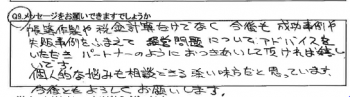 Q9.メッセージをお願いできますでしょうか
帳簿作製や税金計算だけでなく 今後も 成功事例や
失敗事例をふまえて 経営問題について、アドバイスを
いただき パートナーのようにおつきあいして頂ければ嬉し
いです。
個人的な悩みも相談できる強い味方だと思っています。
今後ともよろしくお願いします。